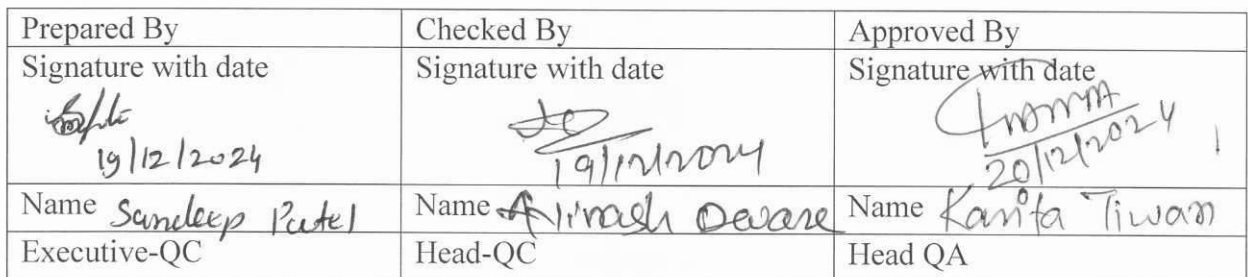 Prepared By Checked By Approved By
Signature with date Signature with date Signature with date
19/12/2024 19/12/2024 20/12/2024
Name Sandeep Patel Name Avinash Deware Name Kavita Tiwari
Executive-QC Head-QC Head QA